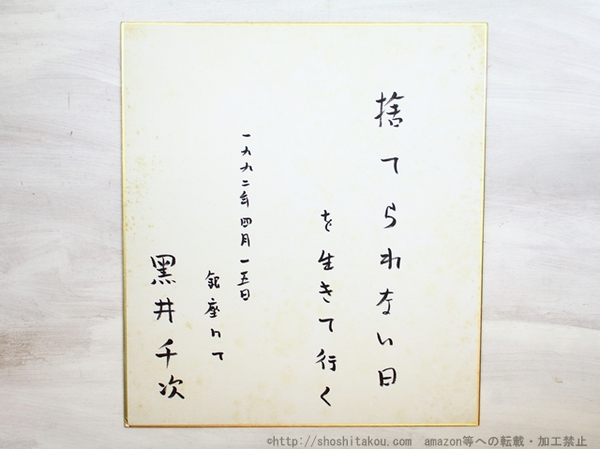 捨てられない日
を生きて行く
一九九二年四月一五日
銀座にて
黒井千次
©http://shoshitakou.com amazon等への転載・加工禁止